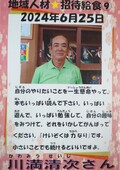 地域人材★招待給食9
2024年6月25日
自分のやりたいことを一生懸命やって、
本もいっぱい読んで下さい。いっぱい
遊んで、いっぱい勉強して、自分の趣味
をみつけて、それをいかしてがんばって
ください。「けいぞくは力なり」です。
つづけることが大切です。
かわみつせいじ
川満清次さん